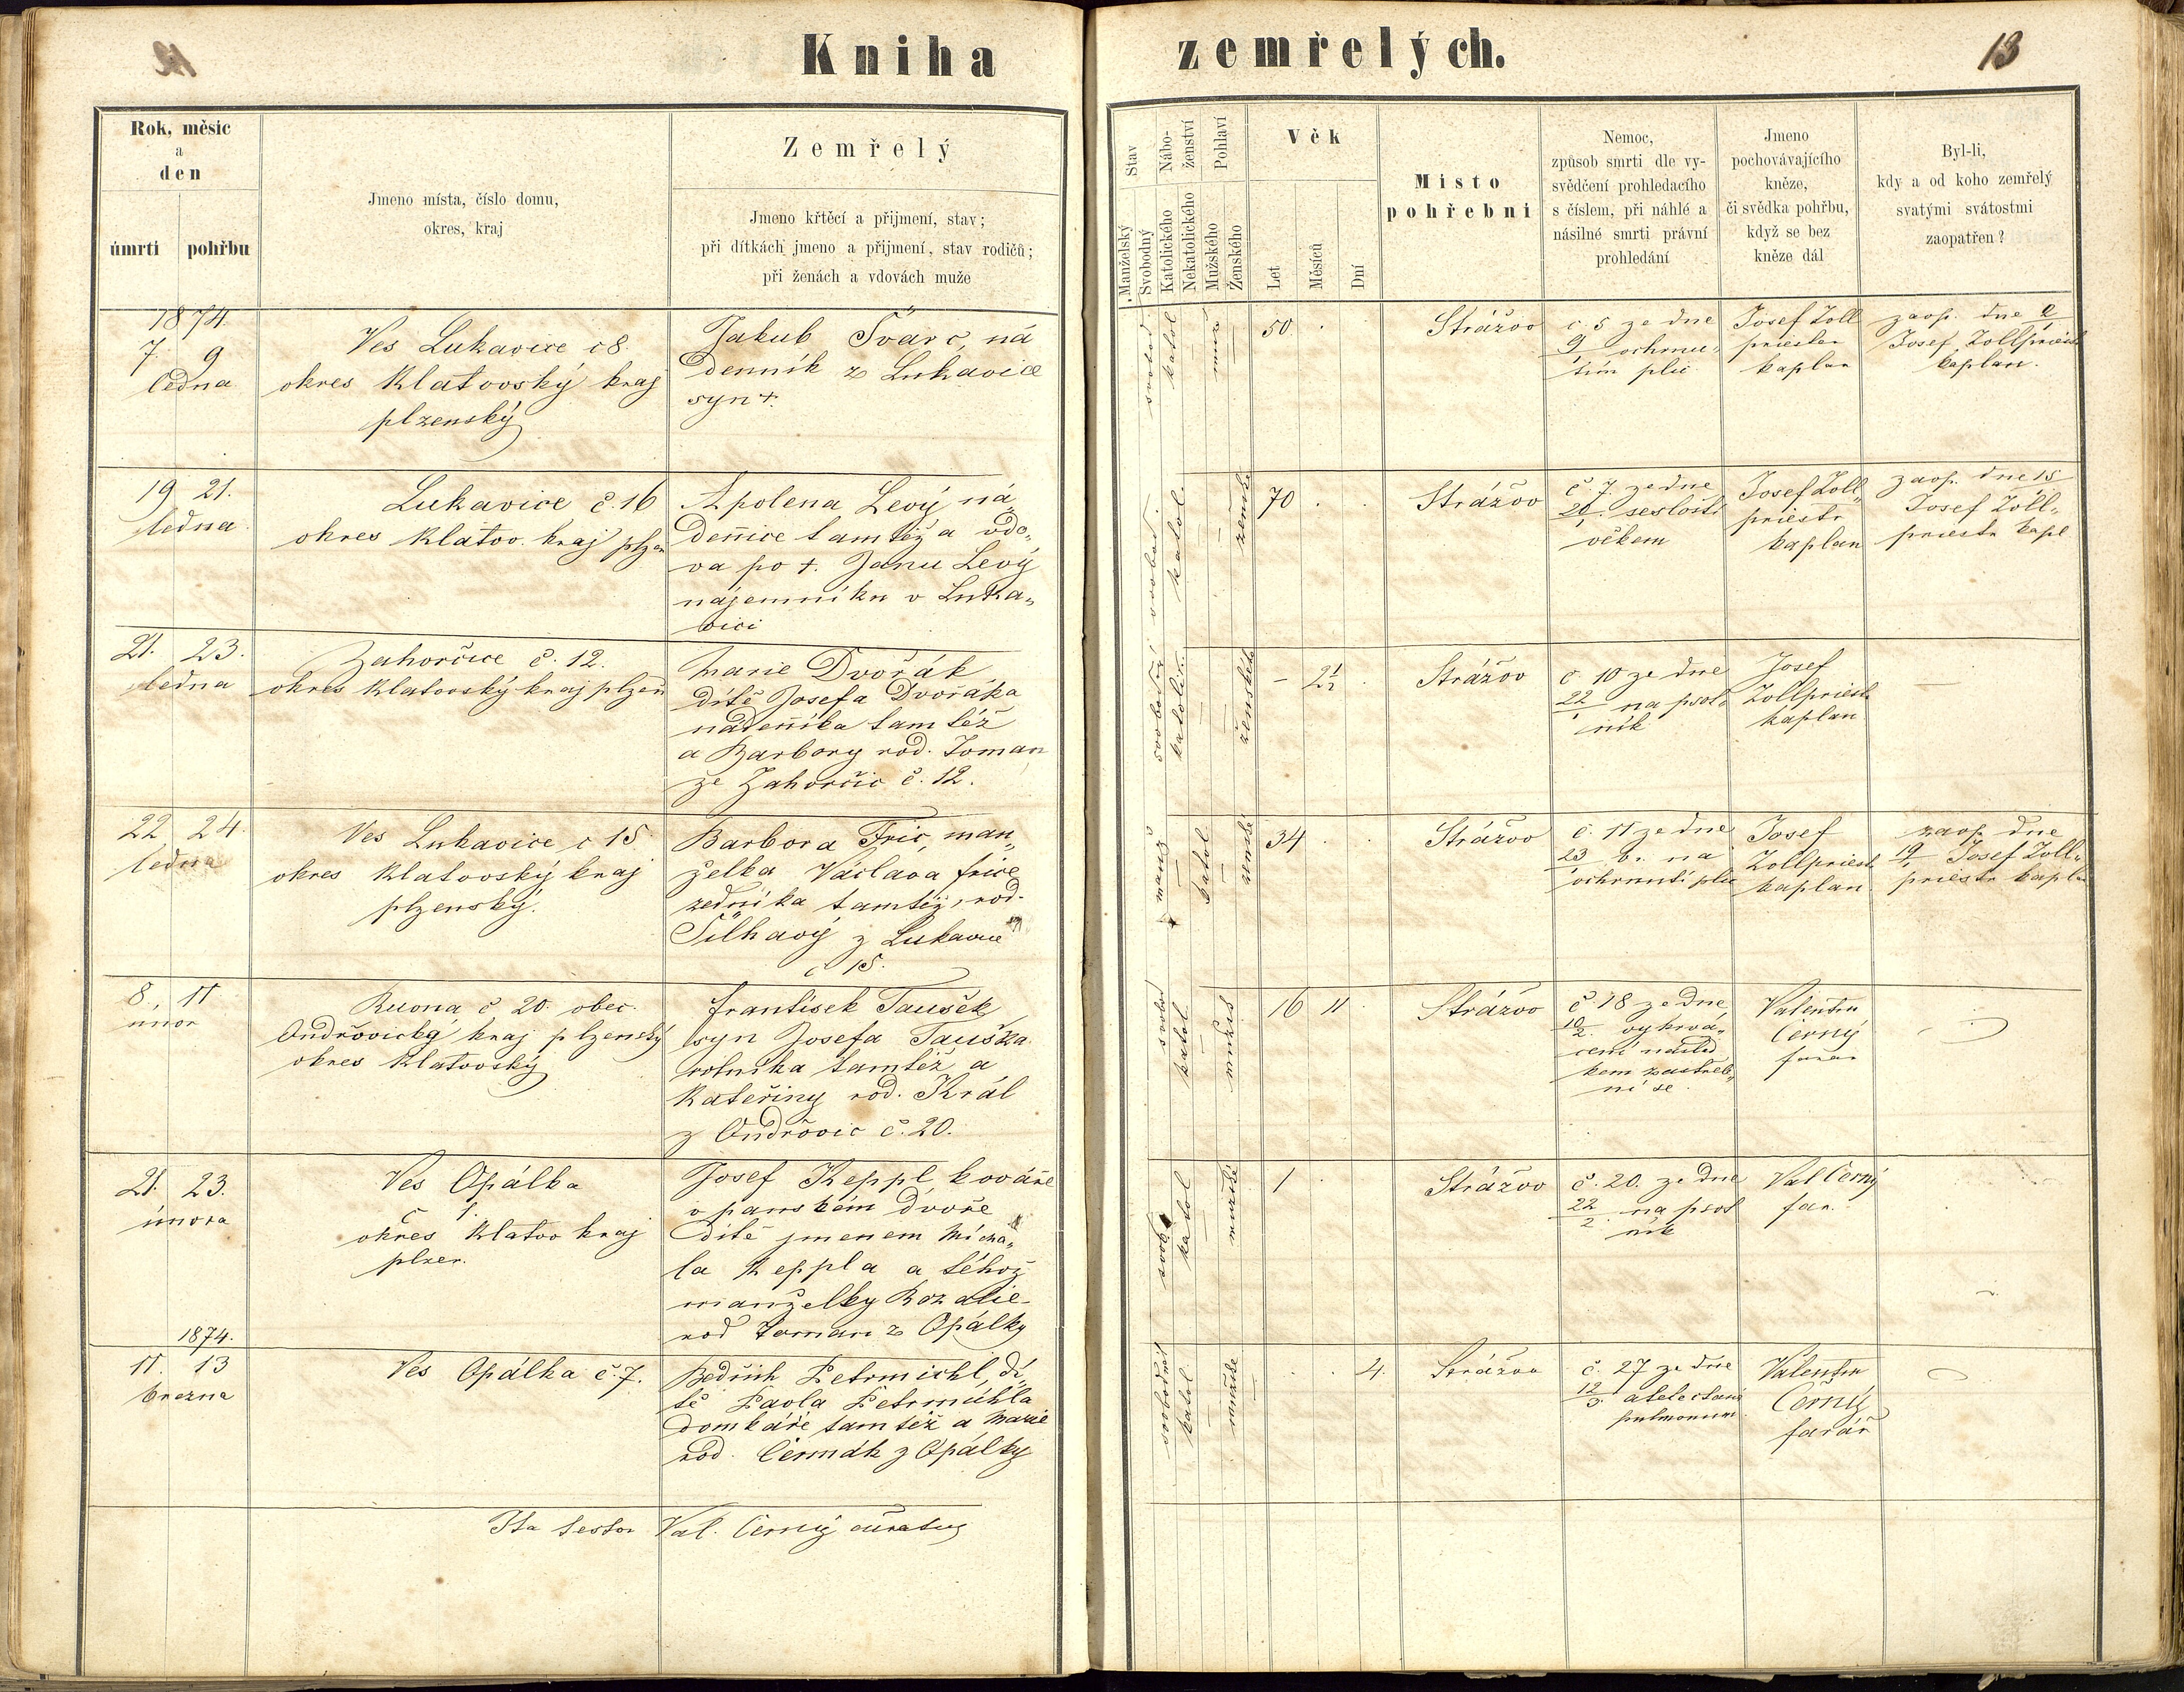 Kniha zemřelých.
13
Rok, měsíc
a
den
úmrtí
pohřbu
Jmeno místa, číslo domu,
okres, kraj
Zemřelý
Jmeno křtěcí a přijmení, stav;
při dítkách jmeno a přijmení, stav rodičů;
při ženách a vdovách muže
Stav
Manželský
Svobodný
Nábo-
ženství
Katolického
Nekatolického
Pohlaví
Mužského
Ženského
Věk
Let
Měsíců
Dní
Místo
pohřební
Nemoc,
způsob smrti dle vy-
svědčení prohledacího
s číslem, při náhlé a
násilné smrti právní
prohledání
Jmeno
pochovávajícího
kněze,
či svědka pohřbu,
když se bez
kněze dál
Byl-li,
kdy a od koho zemřelý
svatými svátostmi
zaopatřen?
1874.
7. 9
ledna
Ves Lukavice č 8.
okres Klatovský kraj
plzenský
Jakub Švarc, ná
denník z Lukavice
syn +.
svobod.
katol
50
Strážov
č. 5 ze dne
9/1 ochrnu„
tím plic
Josef Zoll
priester
kaplan
zaop. dne 2/1
Josef Zollpriest
kaplan.
19 21.
ledna
Lukavice č. 16
okres Klatov. kraj plzen
Apolena Levý ná„
denice tamtéž a vdo„
va po +. Janu Levý
nájemníku v Luka„
vici
katol.
ženské
70
Strážov
č. 7. ze dne
20/1 sešlostí
věkem
Josef Zoll„
priestr
kaplan
zaop. dne 15
Josef Zöll„
priestr kapl
21. 23.
ledna
Zahorčice č. 12.
okres Klatovský kraj plzeň
Marie Dvořák
dítě Josefa Dvořáka
nádeníka tamtéž
a Barbory rod. Toman
ze Zahorčic č. 12.
svobodný
katolic.
ženského
- 2 1/2
Strážov
č. 10 ze dne
22/1 na psot„
ník
Josef
Zollpriest
kaplan
22 24.
ledna
Ves Lukavice č 15
okres Klatovský kraj
plzenský.
Barbora Fric, man„
želka Václava Frice
zedníka tamtéž, rod.
Šilhavý z Lukavice
č 15.
manž
katol
ženské
34
Strážov
č. 11 ze dne
23/1 na
ochrnutí plic
Josef
Zollpriest
kaplan
zaop. dne
19/1 Josef Zoll„
priestr kapl
8. 11
únor
Ruona č 20. obec.
Ondřovický kraj plzenský
okres Klatovský
František Taušek
syn Josefa Tauška
rolníka tamtéž a
Kateřiny rod. Král
z Ondřovic č. 20.
svobo
katol.
mužsk
16 11
Strážov
č. 18 ze dne
10/2. vykrvá„
cení násled
kem zastřele„
ní se
Valentin
Černý
farar
21. 23.
února
Ves Opálka
č 1.
okres Klatov kraj
plzen.
Josef Keppl kováře
v panském dvoře
dítě jmenem Micha„
la Keppla a téhož
manželky Rozalie
rod Toman z Opálky
svob.
katol
mužské
1
Strážov
č. 20. ze dne
22/2 na psot
ník
Val Černý
far.
1874.
11. 13
března
Ves Opálka č. 7.
Bedřich Petrmichl, dí„
tě Pavla Petrmichla
domkáře tamtéž a Marie
rod. Čermák z Opálky
svobodné
katol.
mužské
4.
Strážov
č. 27 ze dne
12/3. atelectasis
pulmonum
Valentin
Černý
farář
Ita testor Val. Černý curatus